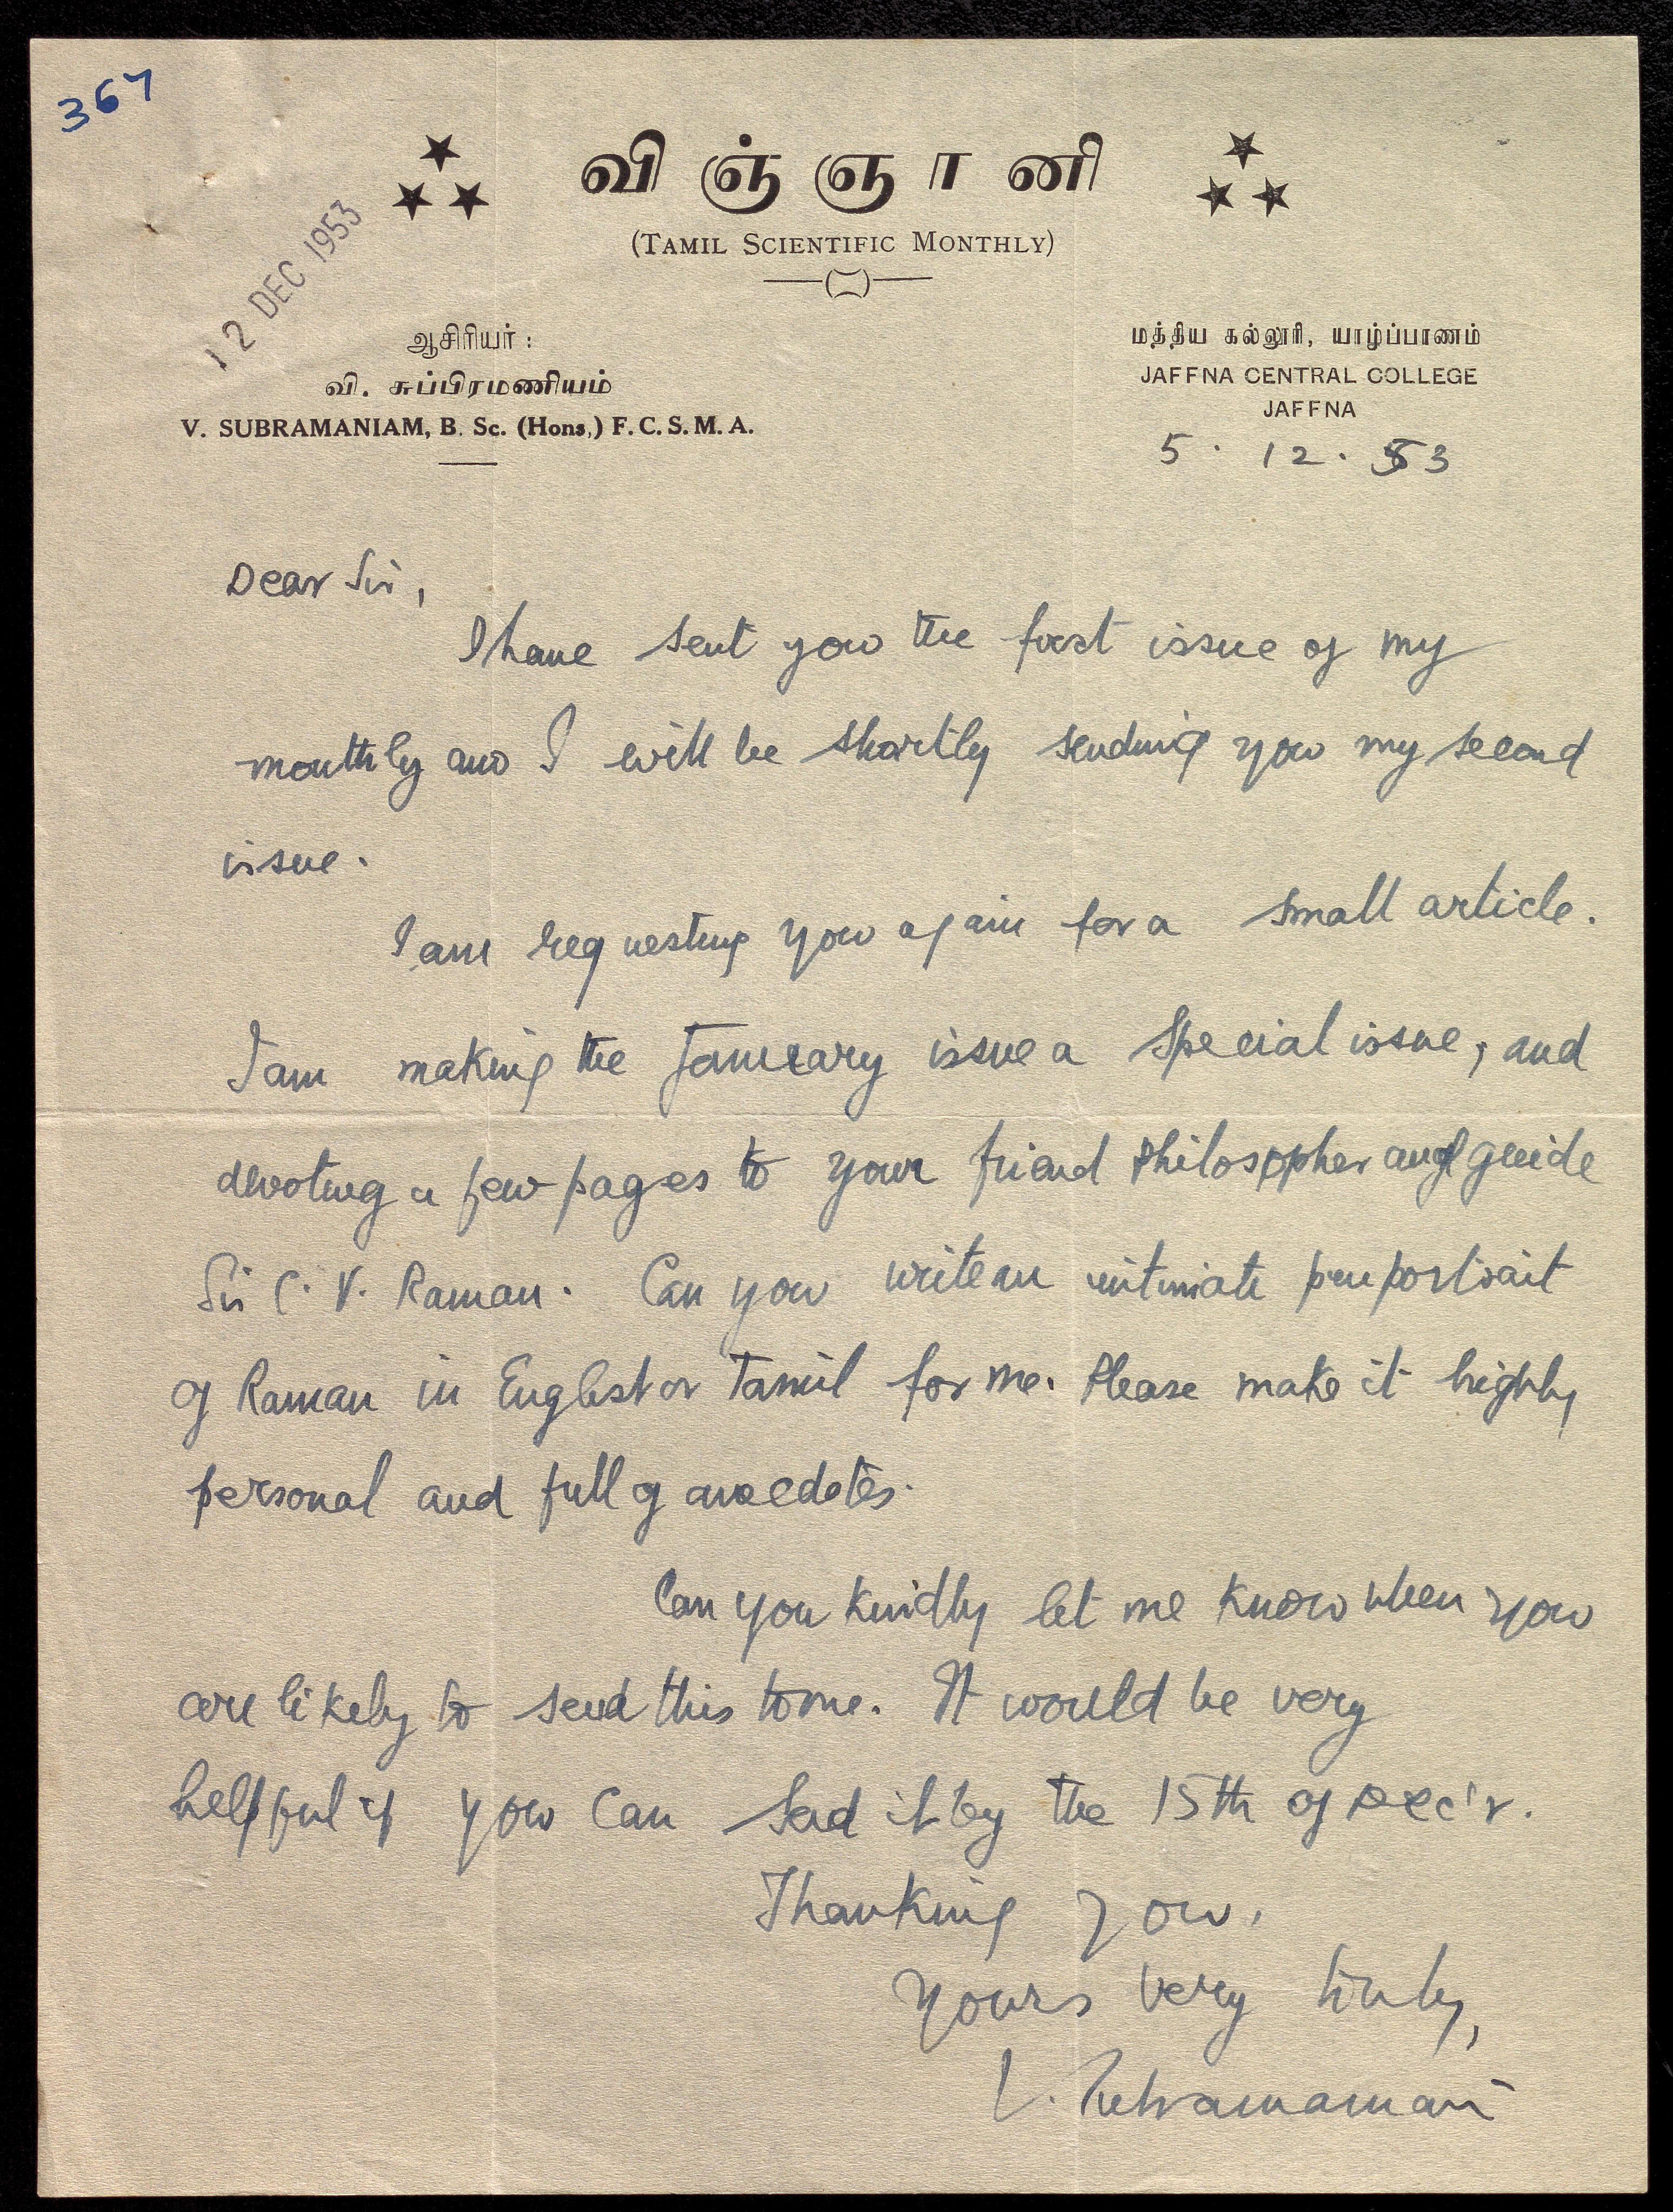 367
விஞ்ஞானி
(TAMIL SCIENTIFIC MONTHLY)
12 DEC 1953
ஆசிரியர் :
வி. சுப்பிரமணியம்
V. SUBRAMANIAM, B. Sc. (Hons,) F. C. S. M. A.
மத்திய கல்லூரி, யாழ்ப்பாணம்
JAFFNA CENTRAL COLLEGE
JAFFNA
5. 12. 53
Dear Sir,
I have sent you the first issue of my
monthly and I will be shortly sending you my second
issue.
I am requesting you again for a small article.
I am making the January issue a special issue, and
devoting a few pages to your friend philosopher and guide
Sir C. V. Raman. Can you write an intimate pen portrait
of Raman in English or Tamil for me. Please make it highly
personal and full of anecdotes.
Can you kindly let me know when you
are likely to send this to me. It would be very
helpful if you can send it by the 15th of Dec'r.
Thanking you,
Yours very truly,
V. Subramaniam